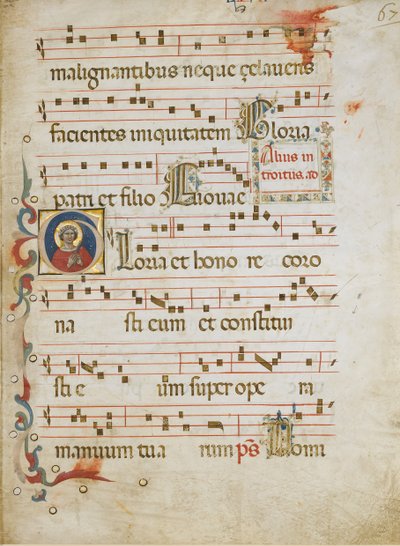 67
malignantibus neque çelaueris
facientes iniquitatem Gloria
Alius in
troitus ad
patri et filio Euouae
Gloria et hono re coro
na sti eum et constitui
sti e um super ope ra
manuum tua rum ps Domi